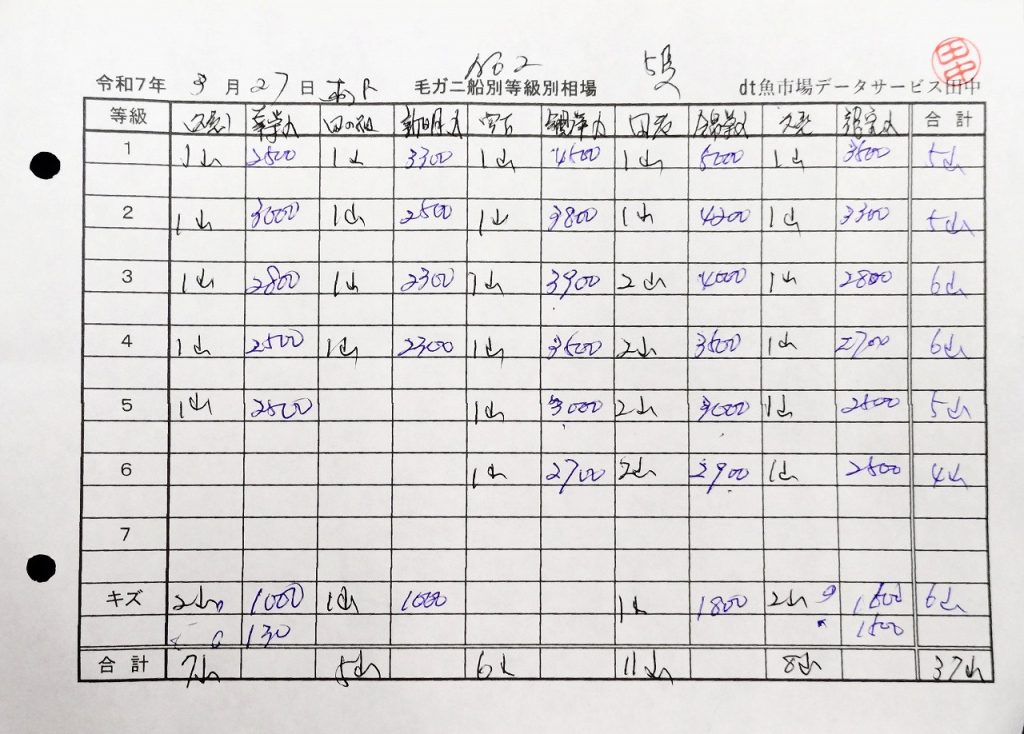 No 2
令和7年 3月27日 毛ガニ船別等級別相場 5隻 dt魚市場データサービス田中
田中
等級 合計
1 1山 2500 1山 3300 1山 4500 1山 5000 1山 3500 5山
2 1山 3000 1山 2500 1山 3800 1山 4200 1山 3300 5山
3 1山 2800 1山 2300 1山 3900 2山 4000 1山 2800 6山
4 1山 2500 1山 2300 1山 3500 2山 3500 1山 2700 6山
5 1山 2500 1山 3000 2山 3000 1山 2500 5山
6 1山 2700 2山 2900 1山 2500 4山
7
キズ 2山 1000 1山 1000 1山 1800 2山 1600 6山
130 1500
合計 7山 5山 6山 11山 8山 37山